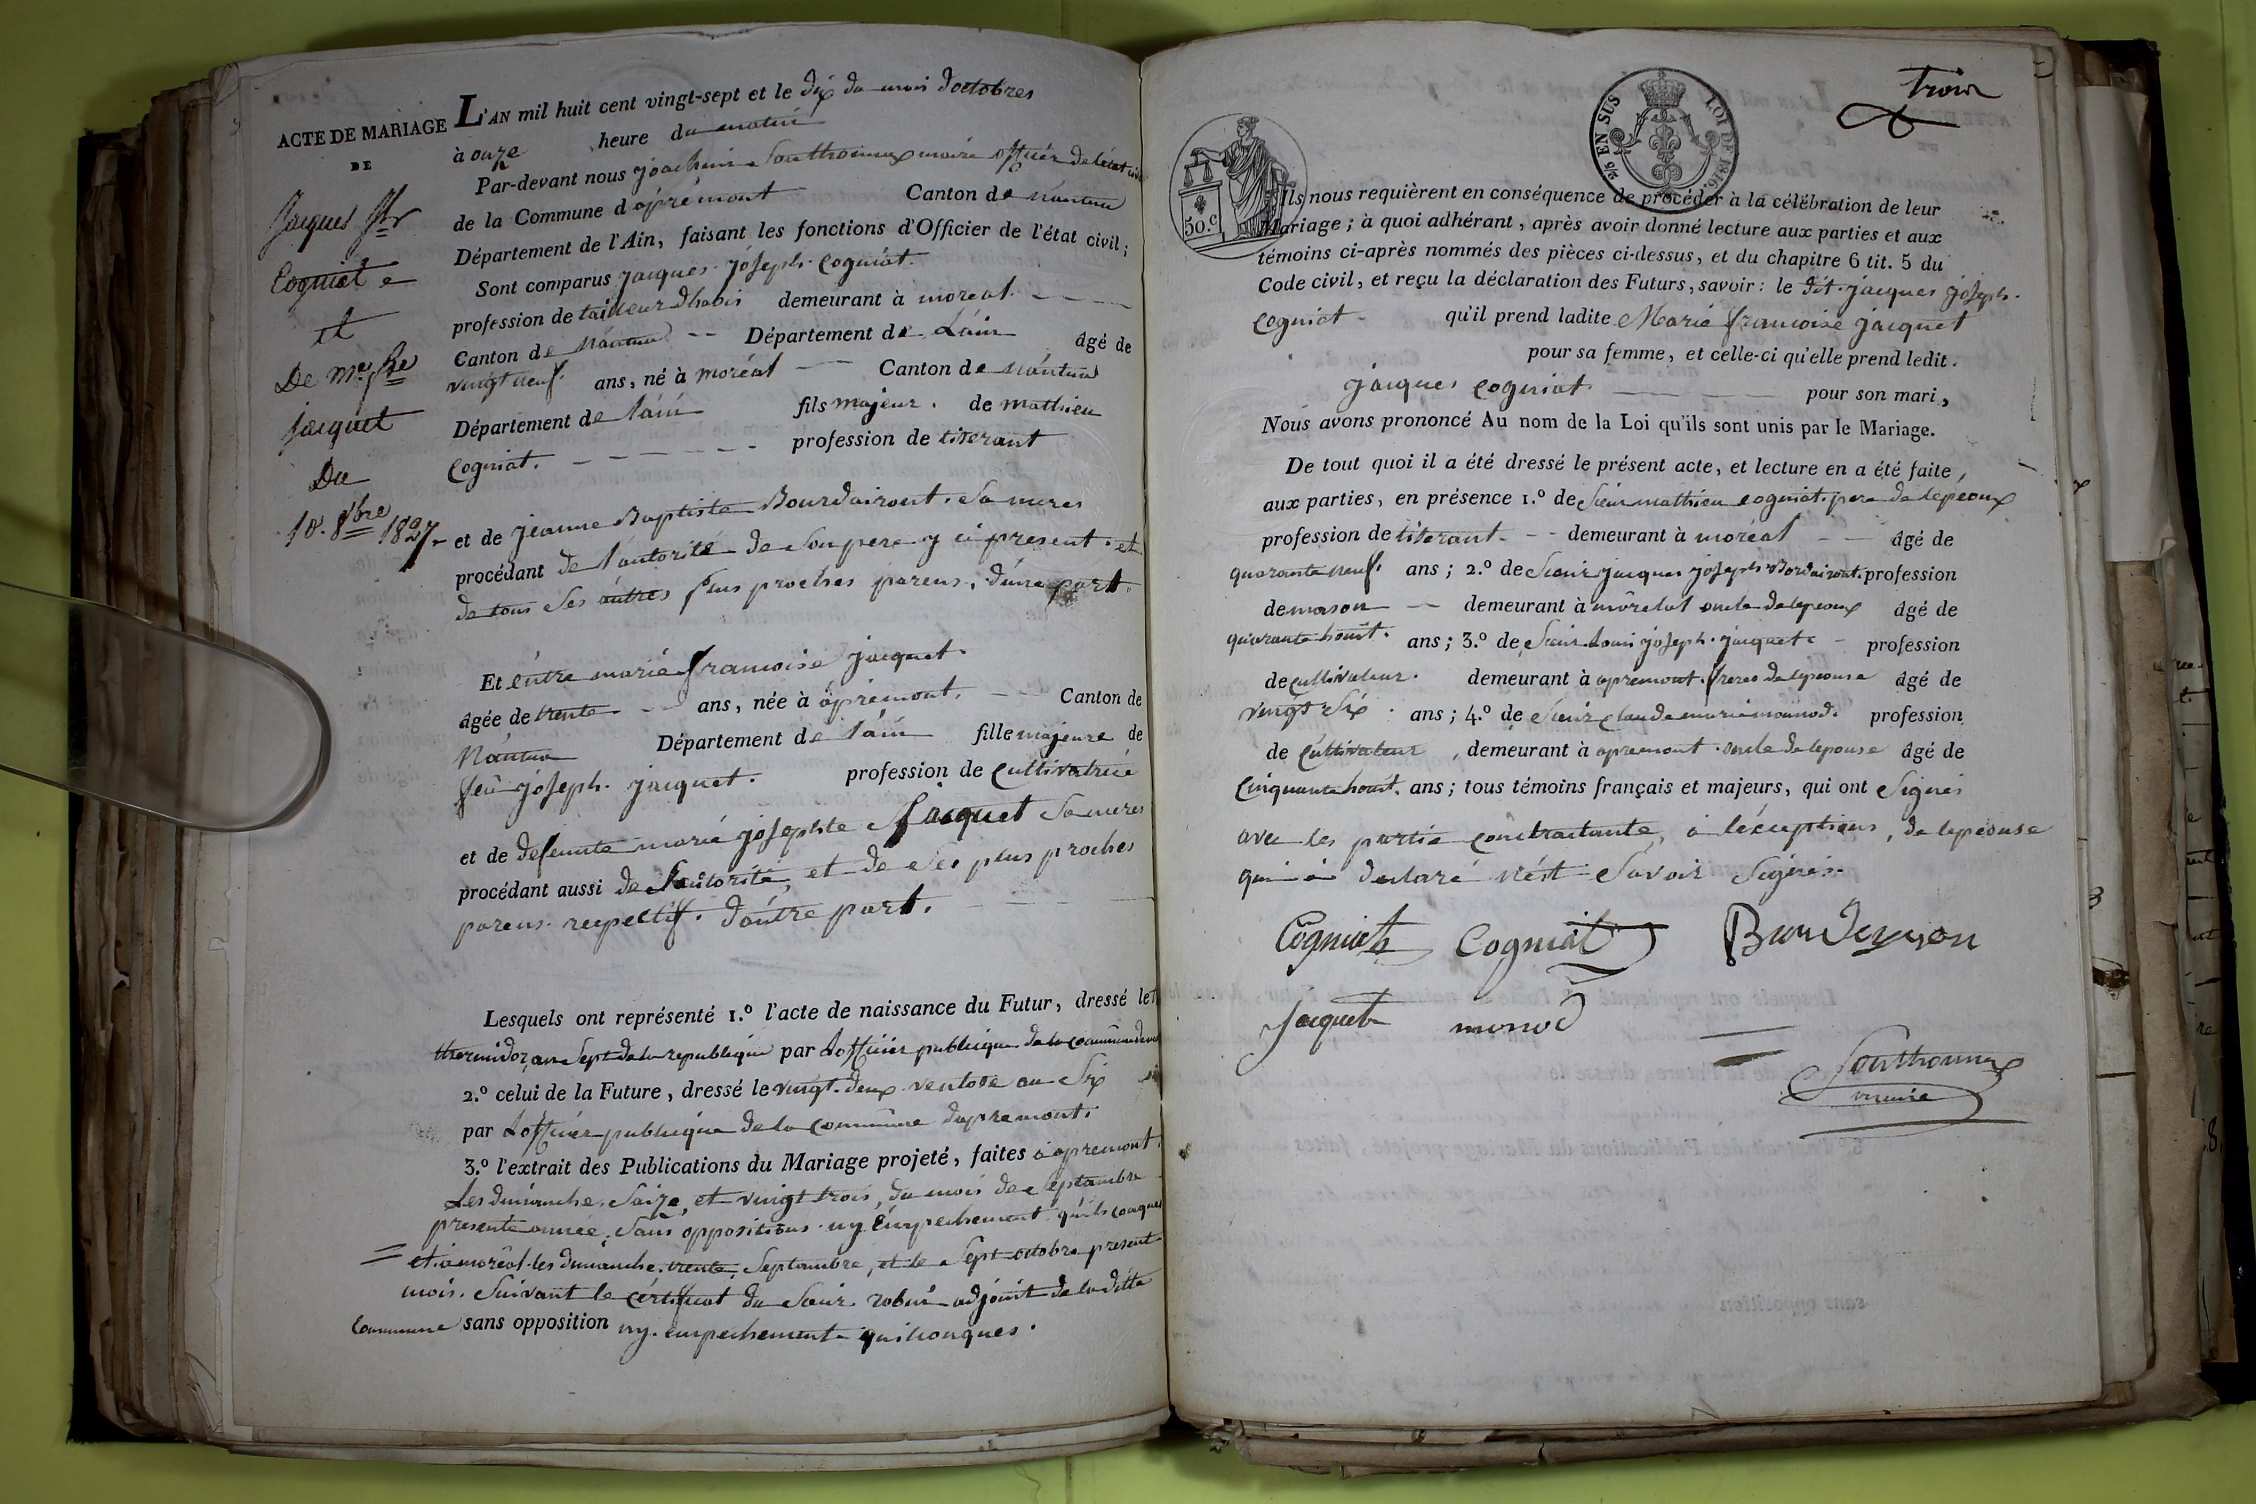 ACTE DE MARIAGE
DE
Jacques Jh
Cogniat
et
De Me fse
jacquet
Du
10. 8bre 1827
L'AN mil huit cent vingt-sept et le dix du mois doctobres
à onze heure du matin
Par-devant nous joachim Southonnax maire officier de létat civil
de la Commune d'apremont Canton de nantua
Département de l'Ain, faisant les fonctions d'Officier de l'état civil;
Sont comparus jacques joseph cogniat.
profession de tailleur dhabis demeurant à moreat
Canton de nantua Département de Láin âgé de
vingt neuf ans, né à moréat Canton de nantua
Département de láin fils majeur. de mathieu
Cogniat. profession de titerant
et de jeanne Baptiste Bourdairont. Sa meres
procédant de lautorité de Son pere y ci present. et
de tous Ses autres plus proches parens, dune part.
Et éntre marie francoise jacquet.
âgée de trente ans, née à apremont. Canton de
Nantua Département de láin fille majeure de
feu joseph. jacquet. profession de cultivatrice
et de defeunte marie josephte Jacquet Sa meres
procédant aussi de Lautorité, et de Ses plus proches
parens. respectif. daûtre part.
Lesquels ont représenté 1.º l'acte de naissance du Futur, dressé le
thermidor an Sept de la republique par Lofficier publique de la commune
2.º celui de la Future, dressé le vingt. deux ventose an Six
par Lofficier publique de la commune dapremont.
3.º l'extrait des Publications du Mariage projeté, faites a apremont.
Les dimanche. Saize, et vingt trois, du mois de Septambre
presente année, Sans oppositions ny Empechement
et. a moréat les dimanche. trente, Septambre, et le Sept octobre present
mois. Suivant le certificat du Sieur robin adjoint de la ditte
Commune sans opposition ny. empechement quiconques.
trois
2/5 EN SUS LOI DE 1816.
50.c
Ils nous requièrent en conséquence de procéder à la célébration de leur
Mariage; à quoi adhérant, après avoir donné lecture aux parties et aux
témoins ci-après nommés des pièces ci-dessus, et du chapitre 6 tit. 5 du
Code civil, et reçu la déclaration des Futurs, savoir: le dit. jacques joseph.
Cogniat qu'il prend ladite Marie francoise jacquet
pour sa femme, et celle-ci qu'elle prend ledit.
jacques cogniat. pour son mari,
Nous avons prononcé Au nom de la Loi qu'ils sont unis par le Mariage.
De tout quoi il a été dressé le présent acte, et lecture en a été faite,
aux parties, en présence 1.º de Sieur mathieu cogniat. pere de lepeoux
profession de titerant. demeurant à moréat âgé de
quarante neuf. ans; 2.º de Sieur jacques joseph Bordairont. profession
de mason demeurant à môretat oncle de lepeoux âgé de
quarante houit. ans; 3.º de Sieur Louis joseph. jacquet profession
de cultivateur. demeurant à apremont. freres de lepeouse âgé de
vingt Six. ans; 4.º de Sieur claude marie mounod. profession
de cultivateur, demeurant à apremont. oncle de lepouse âgé de
Cinquante houit. ans; tous témoins français et majeurs, qui ont Signés
avec les partie contraitante, a léxceptions, de lepeouse
qui a declaré nést Savoir Signés.
Cogniat Cogniat
Jacquet monod
Southonnax
maire